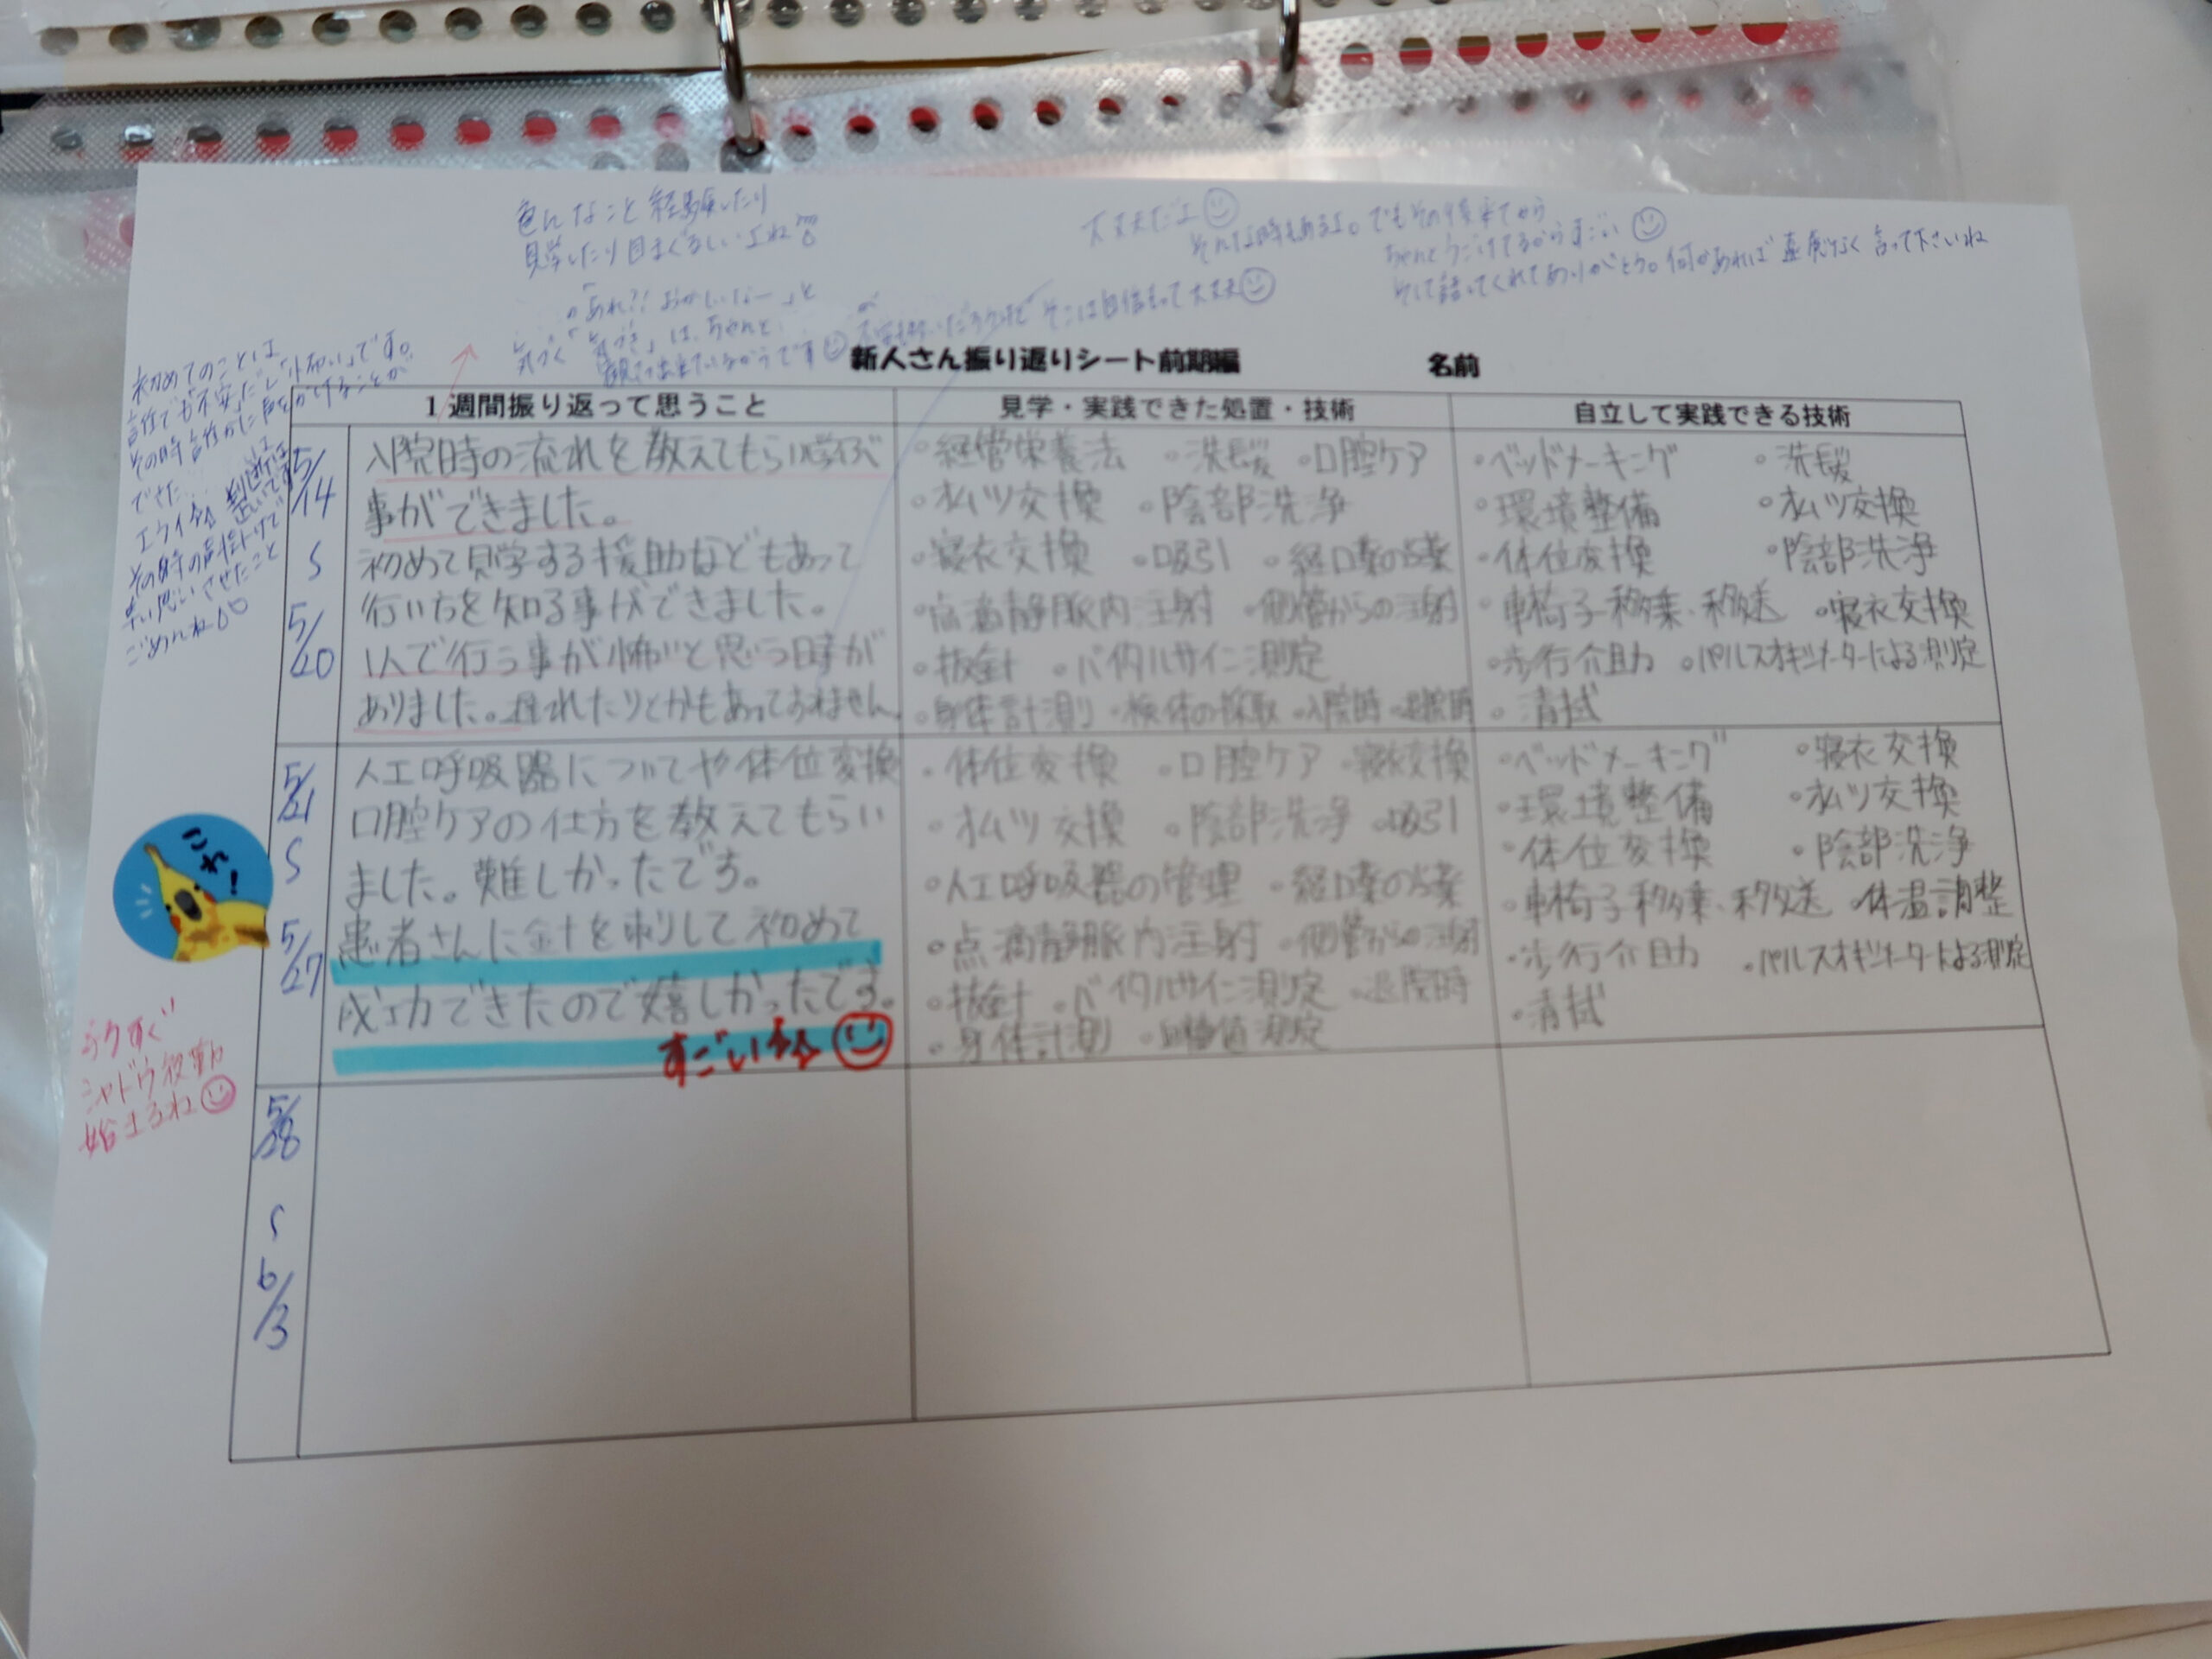 色んなこと経験したり
見学したり目まぐるしいよね
「あれ?!おかしいなー」と
気づく「気づき」は、ちゃんと
大丈夫だよ
そんな時もあるよ。でもその後来てから
ちゃんとうごけてるからすごい
そして話してくれてありがとう。何かあれば遠慮なく言って下さいね
そこは自信もって大丈夫
初めてのことは
誰でも「不安」だし「怖い」です。
その時誰かに声をかけることが
できた
エライ 判断は
その時の声掛けで
思いさせたこと
ごめんね
新人さん振り返りシート前期編 名前
1週間振り返って思うこと 見学・実践できた処置・技術 自立して実践できる技術
5/14 S 5/20
入院時の流れを教えてもらい学ぶ
事ができました。
初めて見学する援助などもあって
行い方を知る事ができました。
1人で行う事が怖いと思う時が
ありました。遅れたりとかもあってすみません
・経管栄養法 ・洗髪 ・口腔ケア
・オムツ交換 ・陰部洗浄
・寝衣交換 ・吸引 ・経口薬の与薬
・点滴静脈内注射 ・側管からの注射
・抜針 ・バイタルサイン測定
・身体計測 ・検体の採取 ・入院時 ・退院時
・ベッドメーキング ・洗髪
・環境整備 ・オムツ交換
・体位変換 ・陰部洗浄
・車椅子移乗、移送 ・寝衣交換
・歩行介助 ・パルスオキシメーターによる測定
・清拭
5/21 S 5/27
人工呼吸器についてや体位変換
口腔ケアの仕方を教えてもらい
ました。難しかったです。
患者さんに針を刺して初めて
成功できたので嬉しかったです。
すごい
・体位変換 ・口腔ケア ・寝衣交換
・オムツ交換 ・陰部洗浄 ・吸引
・人工呼吸器の管理 ・経口薬の与薬
・点滴静脈内注射 ・側管からの注射
・抜針 ・バイタルサイン測定 ・退院時
・身体計測 ・血糖値測定
・ベッドメーキング ・寝衣交換
・環境整備 ・オムツ交換
・体位変換 ・陰部洗浄
・車椅子移乗、移送 ・体温調整
・歩行介助 ・パルスオキシメーターによる測定
・清拭
もうすぐ
シャドウ夜勤
始まるね
5/28 S 6/3